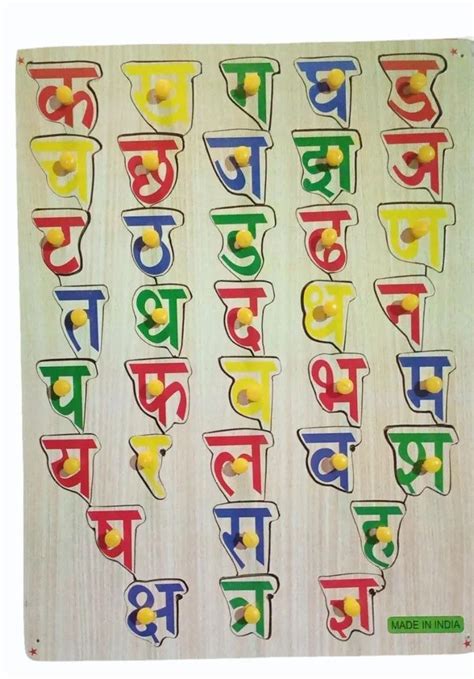 क ख ग घ ङ
च छ ज झ ञ
ट ठ ड ढ ण
त थ द ध न
प फ ब भ म
य र ल व श
ष स ह
क्ष त्र ज्ञ
MADE IN INDIA